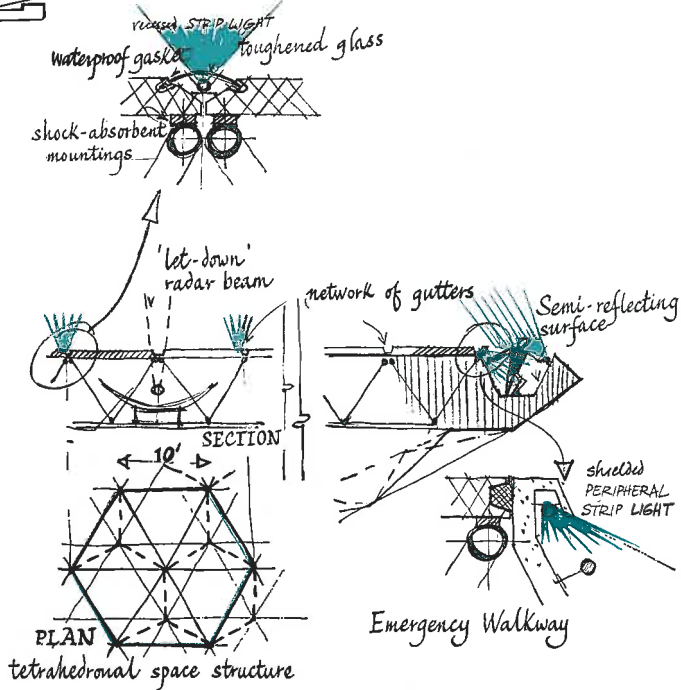 recessed STRIP LIGHT
waterproof gasket
toughened glass
shock-absorbent
mountings
'let-down'
radar beam
network of gutters
Semi-reflecting
surface
SECTION
10'
shielded
PERIPHERAL
STRIP LIGHT
PLAN
tetrahedronal space structure
Emergency Walkway